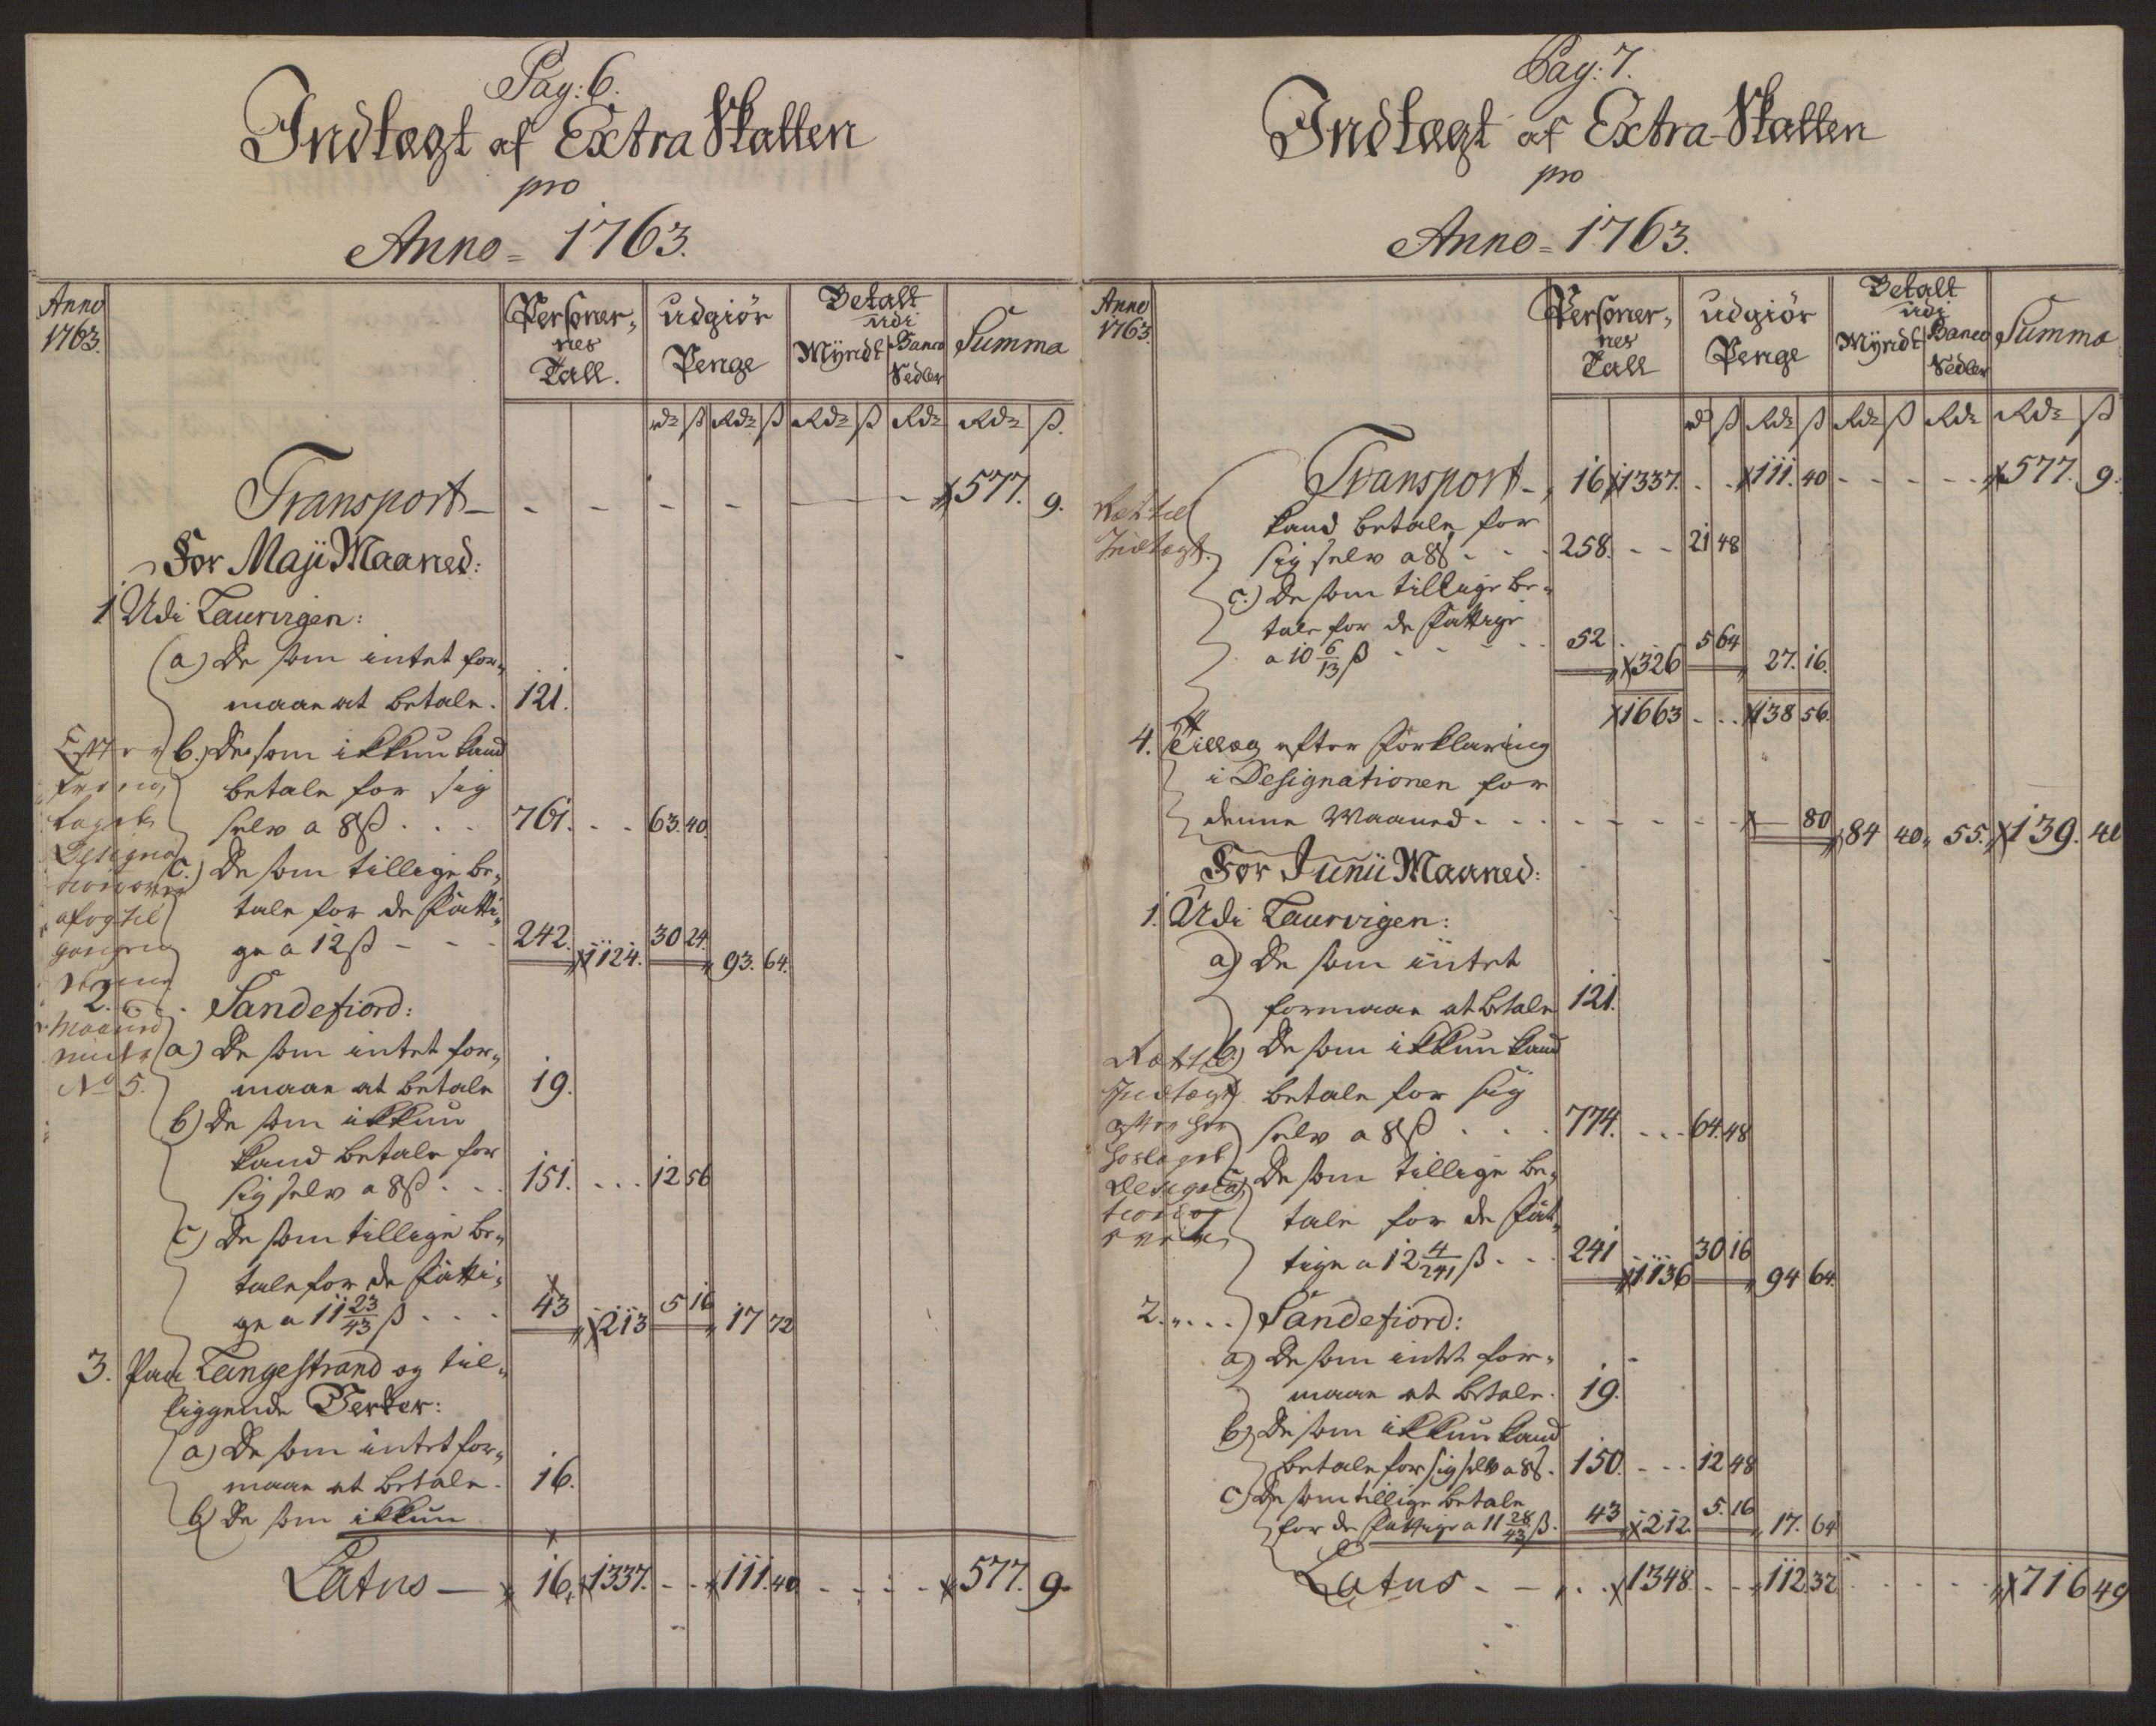 Pag: 6.
Indtægt af Extra Skatten
pro
Anno = 1763.
Anno 1763.
Personer-nes Tall.
udgiør Penge
Betalt udi
Myndt
Banco Sedler
Summa
rd ß Rd ß Rd ß Rd Rd ß.
Transport - - - - - - 577. 9.
For Maji Maaned:
1 Udi Laurvigen:
a) De som intet for-
maae at betale. 121.
b.) De som ikkun kand
betale for sig
selv a 8 ß . . . 761. . . 63. 40
c.) De som tillige be-
tale for de Fatti-
ge a 12 ß - - - 242. 1124. 30 24. 93. 64.
2. . . Sandefiord:
a) De som intet for-
maae at betale 19.
b) De som ikkun
kand betale for
sig selv a 8 ß . . . 151. . . . 12 56
c) De som tillige be-
tale for de Fatti-
ge a 11 23/43 ß . . . 43 213 5 16 17 72
3. Paa Langestrand og til-
liggende Verker:
a) De som intet for-
maae at betale. 16.
b) De som ikkun
Latus — 16. 1337. - - 111. 40 - - - - 577. 9.
Maaned
No 5.
Pag: 7.
Indtægt af Extra-Skatten
pro
Anno = 1763.
Anno 1763.
Personer-nes Tall
udgiør Penge
Betalt udi
Myndt
Banco Sedler
Summa
rd ß Rd ß Rd ß Rd Rd ß
Transport - 16 1337. . . 111. 40 - - - - - 577. 9.
Indtægt.
kand betale for
sig selv a 8 ß - - - 258. - - 21 48
c.) De som tillige be-
tale for de Fattige
a 10 6/13 ß - - - - 52. 326 5 64 27. 16.
1663 - . . 138 56.
4. Tillæg efter Forklaring
i Designationen for
denne Maaned - - - - - - - - — 80 84 40. 55. 139. 40
For Junii Maaned:
1. Udi Laurvigen:
a) De som intet
formaae at betale 121.
b) De som ikkun kand
betale for sig
selv a 8 ß . . . 774. . . . 64. 48
c) De som tillige be-
tale for de Fat-
tige a 12 4/241 ß . . . 241 1136 30 16 94 64.
2. . . . . Sandefiord:
a) De som intet for-
maae at betale. 19.
b) De som ikkun kand
betale for sig selv a 8 ß. 150. - - - 12 48
c) De som tillige betale
for de Fattige a 11 28/43 ß. 43 212. 5. 16 17. 64
Latus - - . . . 1348. - - 112 32 - - - - 716 49